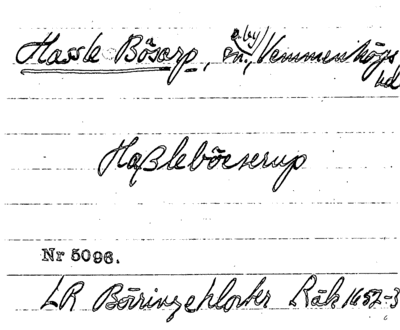 Hassle Bösarp, sn., Vemmenhögs
e. by
hd
Haßleböeserup
Nr 5096.
LR Börringekloster Räk 1652-3